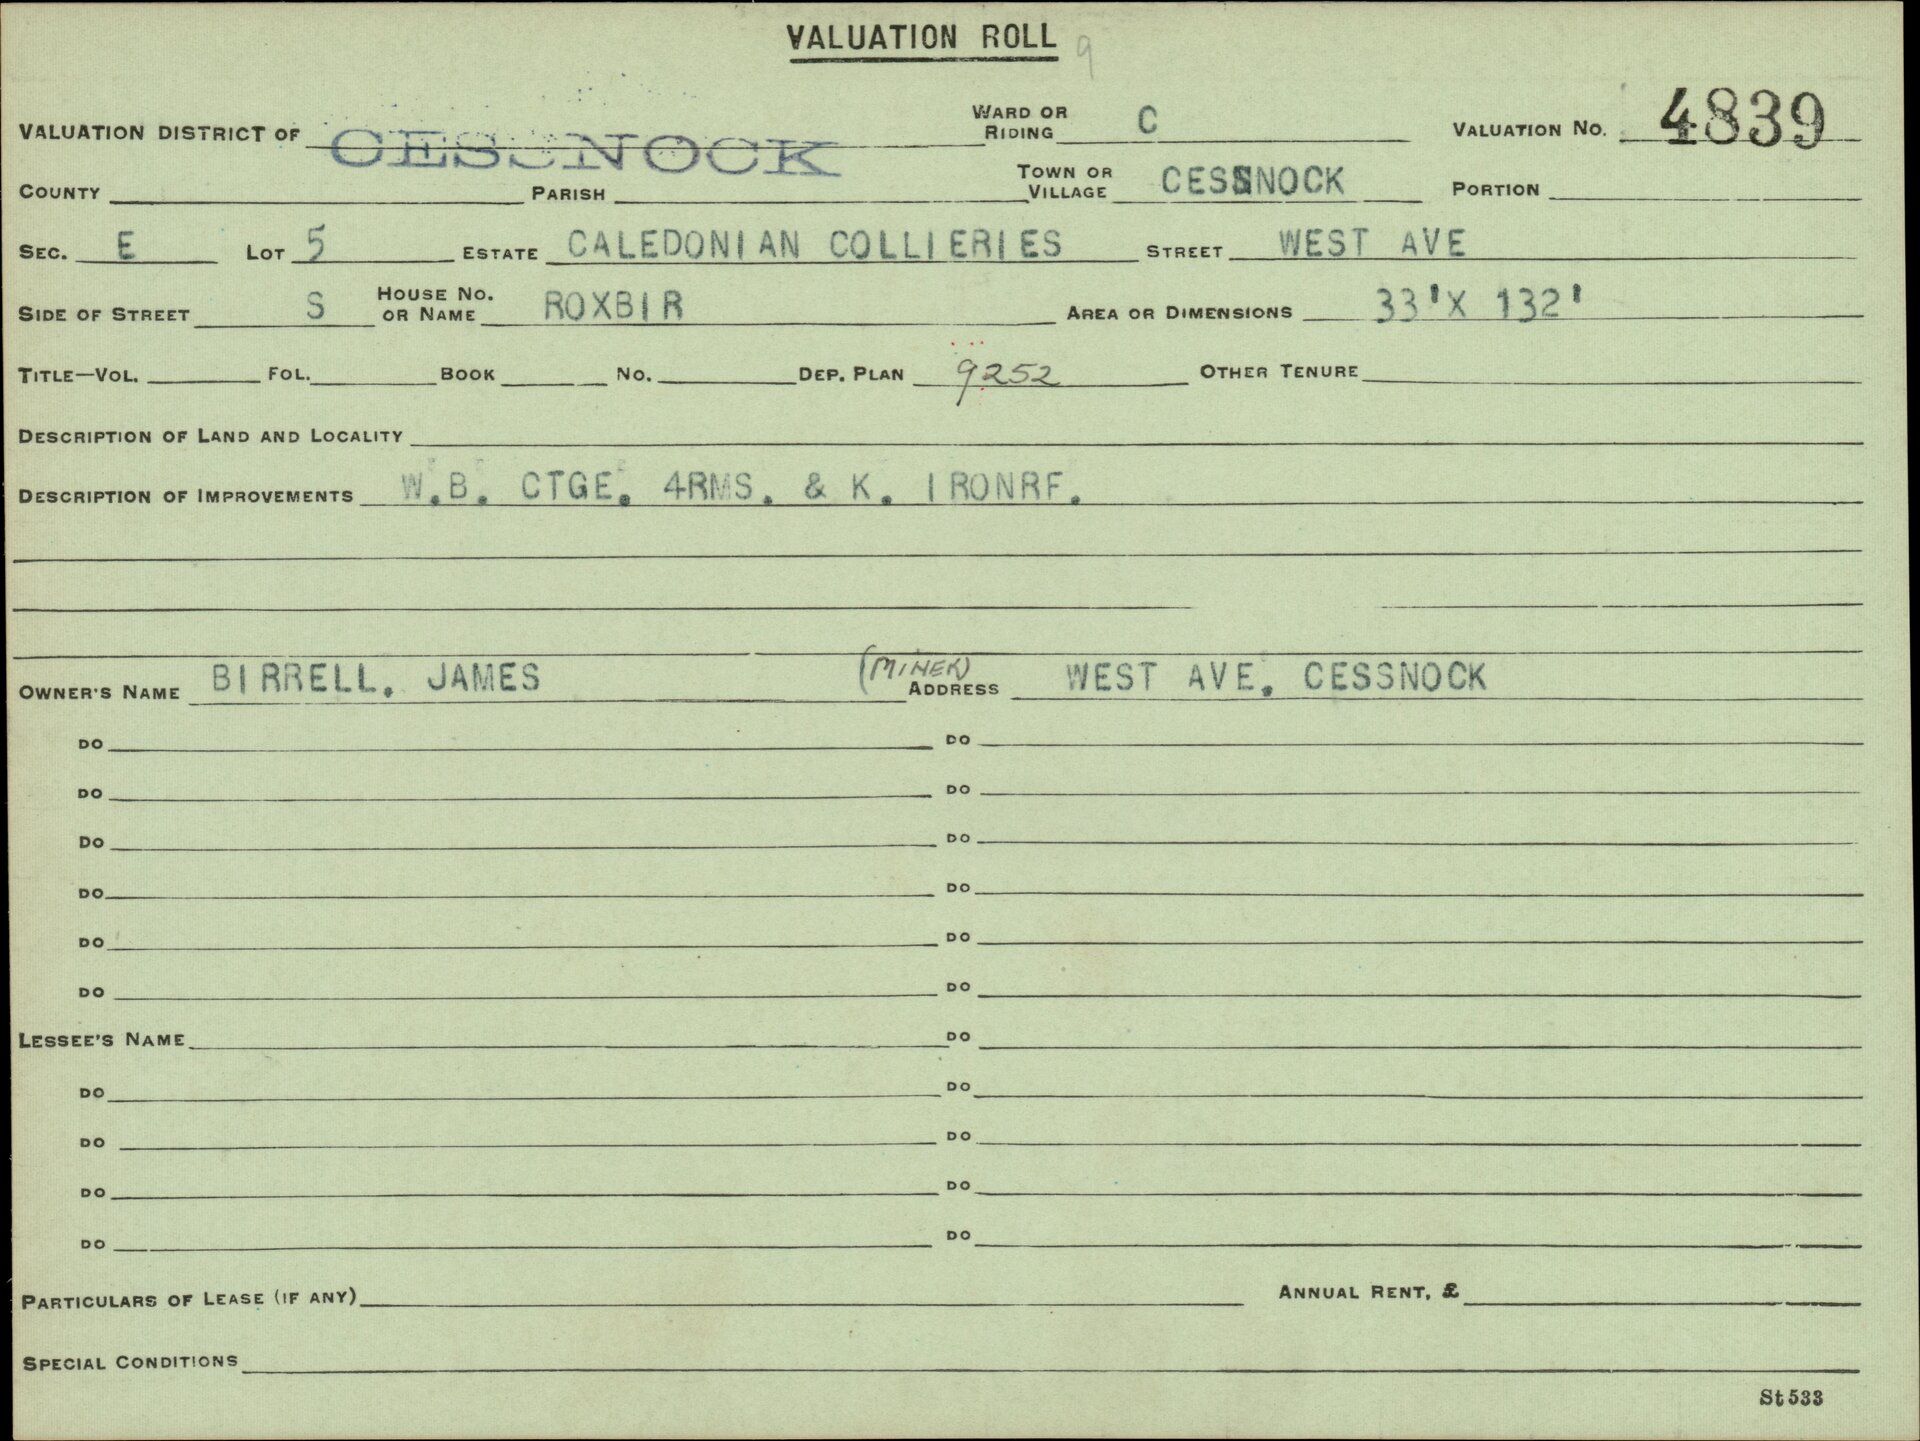 VALUATION ROLL 9
VALUATION DISTRICT OF CESSNOCK WARD OR RIDING C VALUATION NO. 4839
COUNTY PARISH TOWN OR VILLAGE CESSNOCK PORTION
SEC. E LOT 5 ESTATE CALEDONIAN COLLIERIES STREET WEST AVE
SIDE OF STREET S HOUSE NO. OR NAME ROXBIR AREA OR DIMENSIONS 33'X 132'
TITLE—VOL. FOL. BOOK NO. DEP. PLAN 9252 OTHER TENURE
DESCRIPTION OF LAND AND LOCALITY
DESCRIPTION OF IMPROVEMENTS W.B. CTGE. 4RMS. & K. IRONRF.
OWNER'S NAME BIRRELL, JAMES (MINER) ADDRESS WEST AVE, CESSNOCK
DO DO
DO DO
DO DO
DO DO
DO DO
DO DO
LESSEE'S NAME DO
DO DO
DO DO
DO DO
DO DO
PARTICULARS OF LEASE (IF ANY) ANNUAL RENT, £
SPECIAL CONDITIONS
St 533